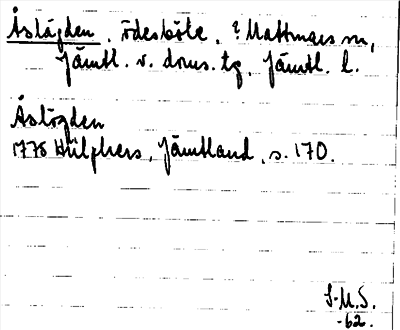 Åslägden, Ödesböle, ? Mattmars sn,
Jämtl. v. doms. tg, Jämtl. l.
Åslägden
1775 Hülphers, Jämtland, s. 170.
S.M.S.
-62.